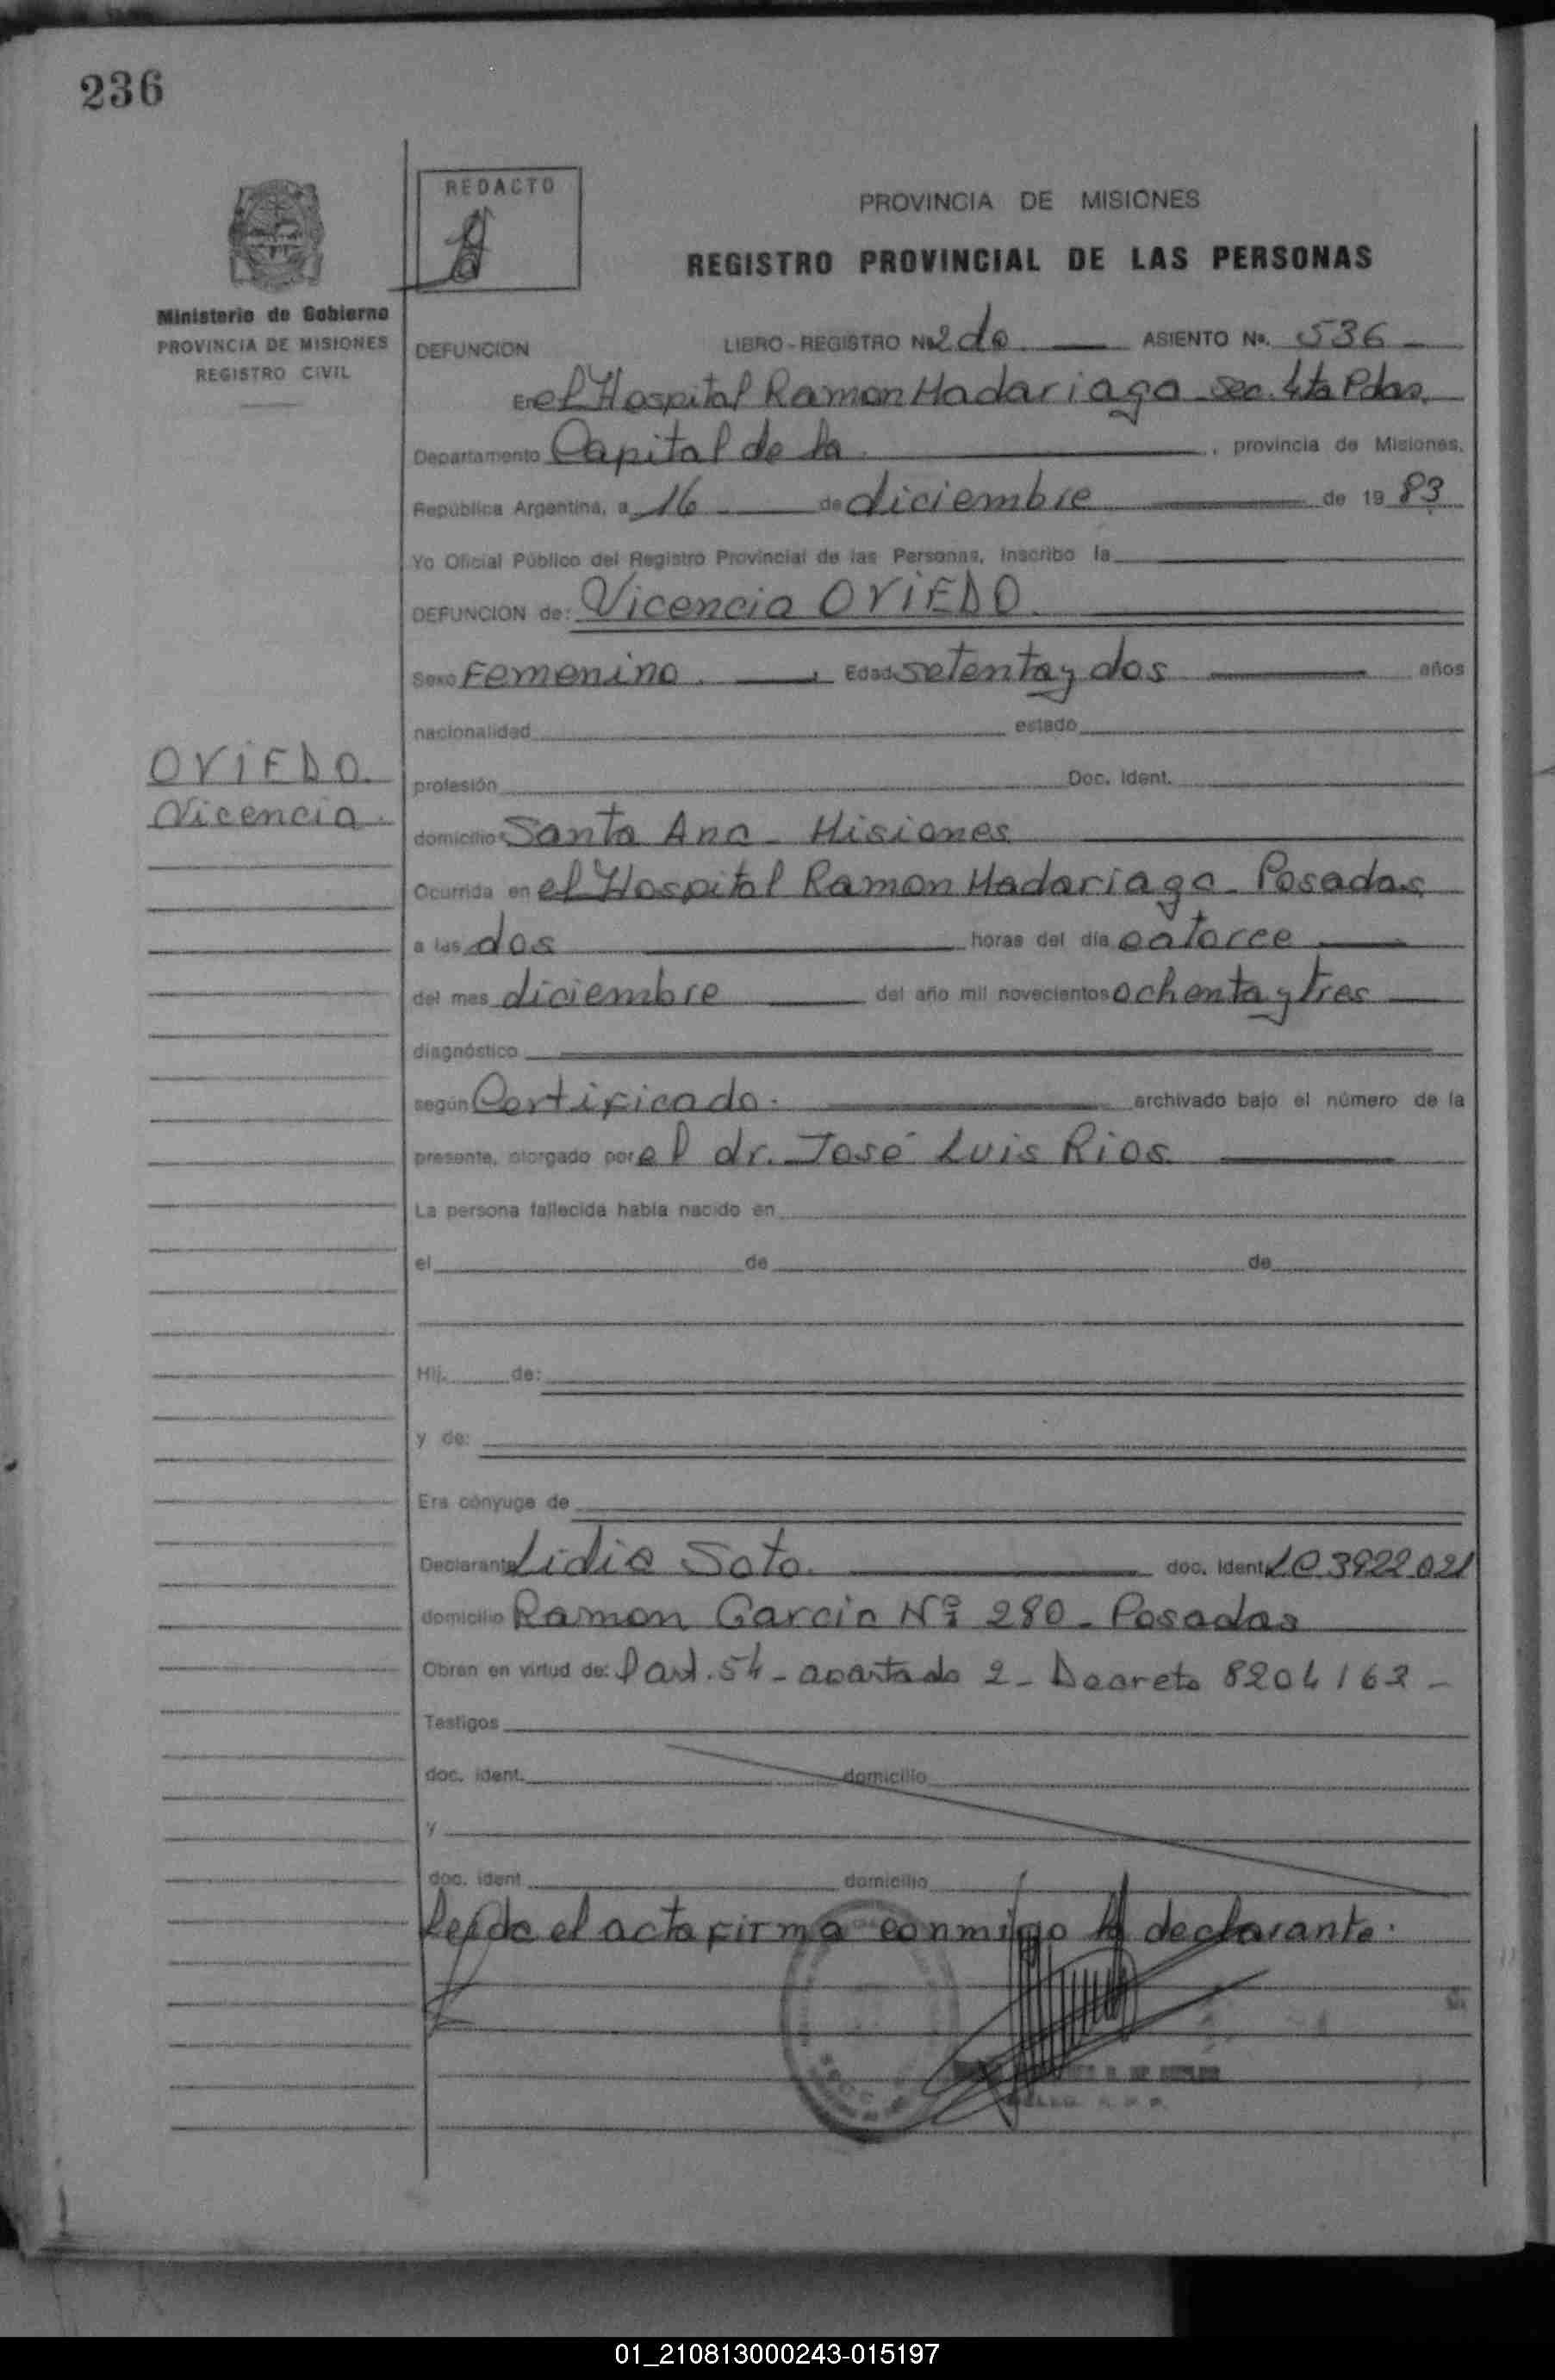 236
REDACTO
PROVINCIA DE MISIONES
REGISTRO PROVINCIAL DE LAS PERSONAS
Ministerio de Gobierno
PROVINCIA DE MISIONES
REGISTRO CIVIL
DEFUNCION LIBRO-REGISTRO Nº 2do ASIENTO Nº. 536
En el Hospital Ramon Madariaga Sec. 4ta Pdas.
Departamento Capital de la , provincia de Misiones,
República Argentina, a 16 de diciembre de 1983
Yo Oficial Público del Registro Provincial de las Personas, inscribo la
DEFUNCION de: Vicencia OVIEDO.
Sexo Femenino. Edad setenta y dos años
nacionalidad estado
OVIEDO.
Vicencia.
profesión Doc. Ident.
domicilio Santa Ana - Misiones
Ocurrida en el Hospital Ramon Madariaga - Posadas
a las dos horas del día catorce
del mes diciembre del año mil novecientos ochenta y tres
diagnóstico
según Certificado. archivado bajo el número de la
presente, otorgado por el dr. José Luis Rios
La persona fallecida había nacido en
el de de
Hij. de:
y de:
Era cónyuge de
Declarante Lidia Soto. doc. Ident. LC 3922021
domicilio Ramon Garcia Nº 280 - Posadas
Obran en virtud de: l art. 54 - apartado 2 - Decreto 8204/63 -
Testigos
doc. ident. domicilio
y
doc. ident domicilio
Leída el acta firma conmigo la declarante.
01_210813000243-015197